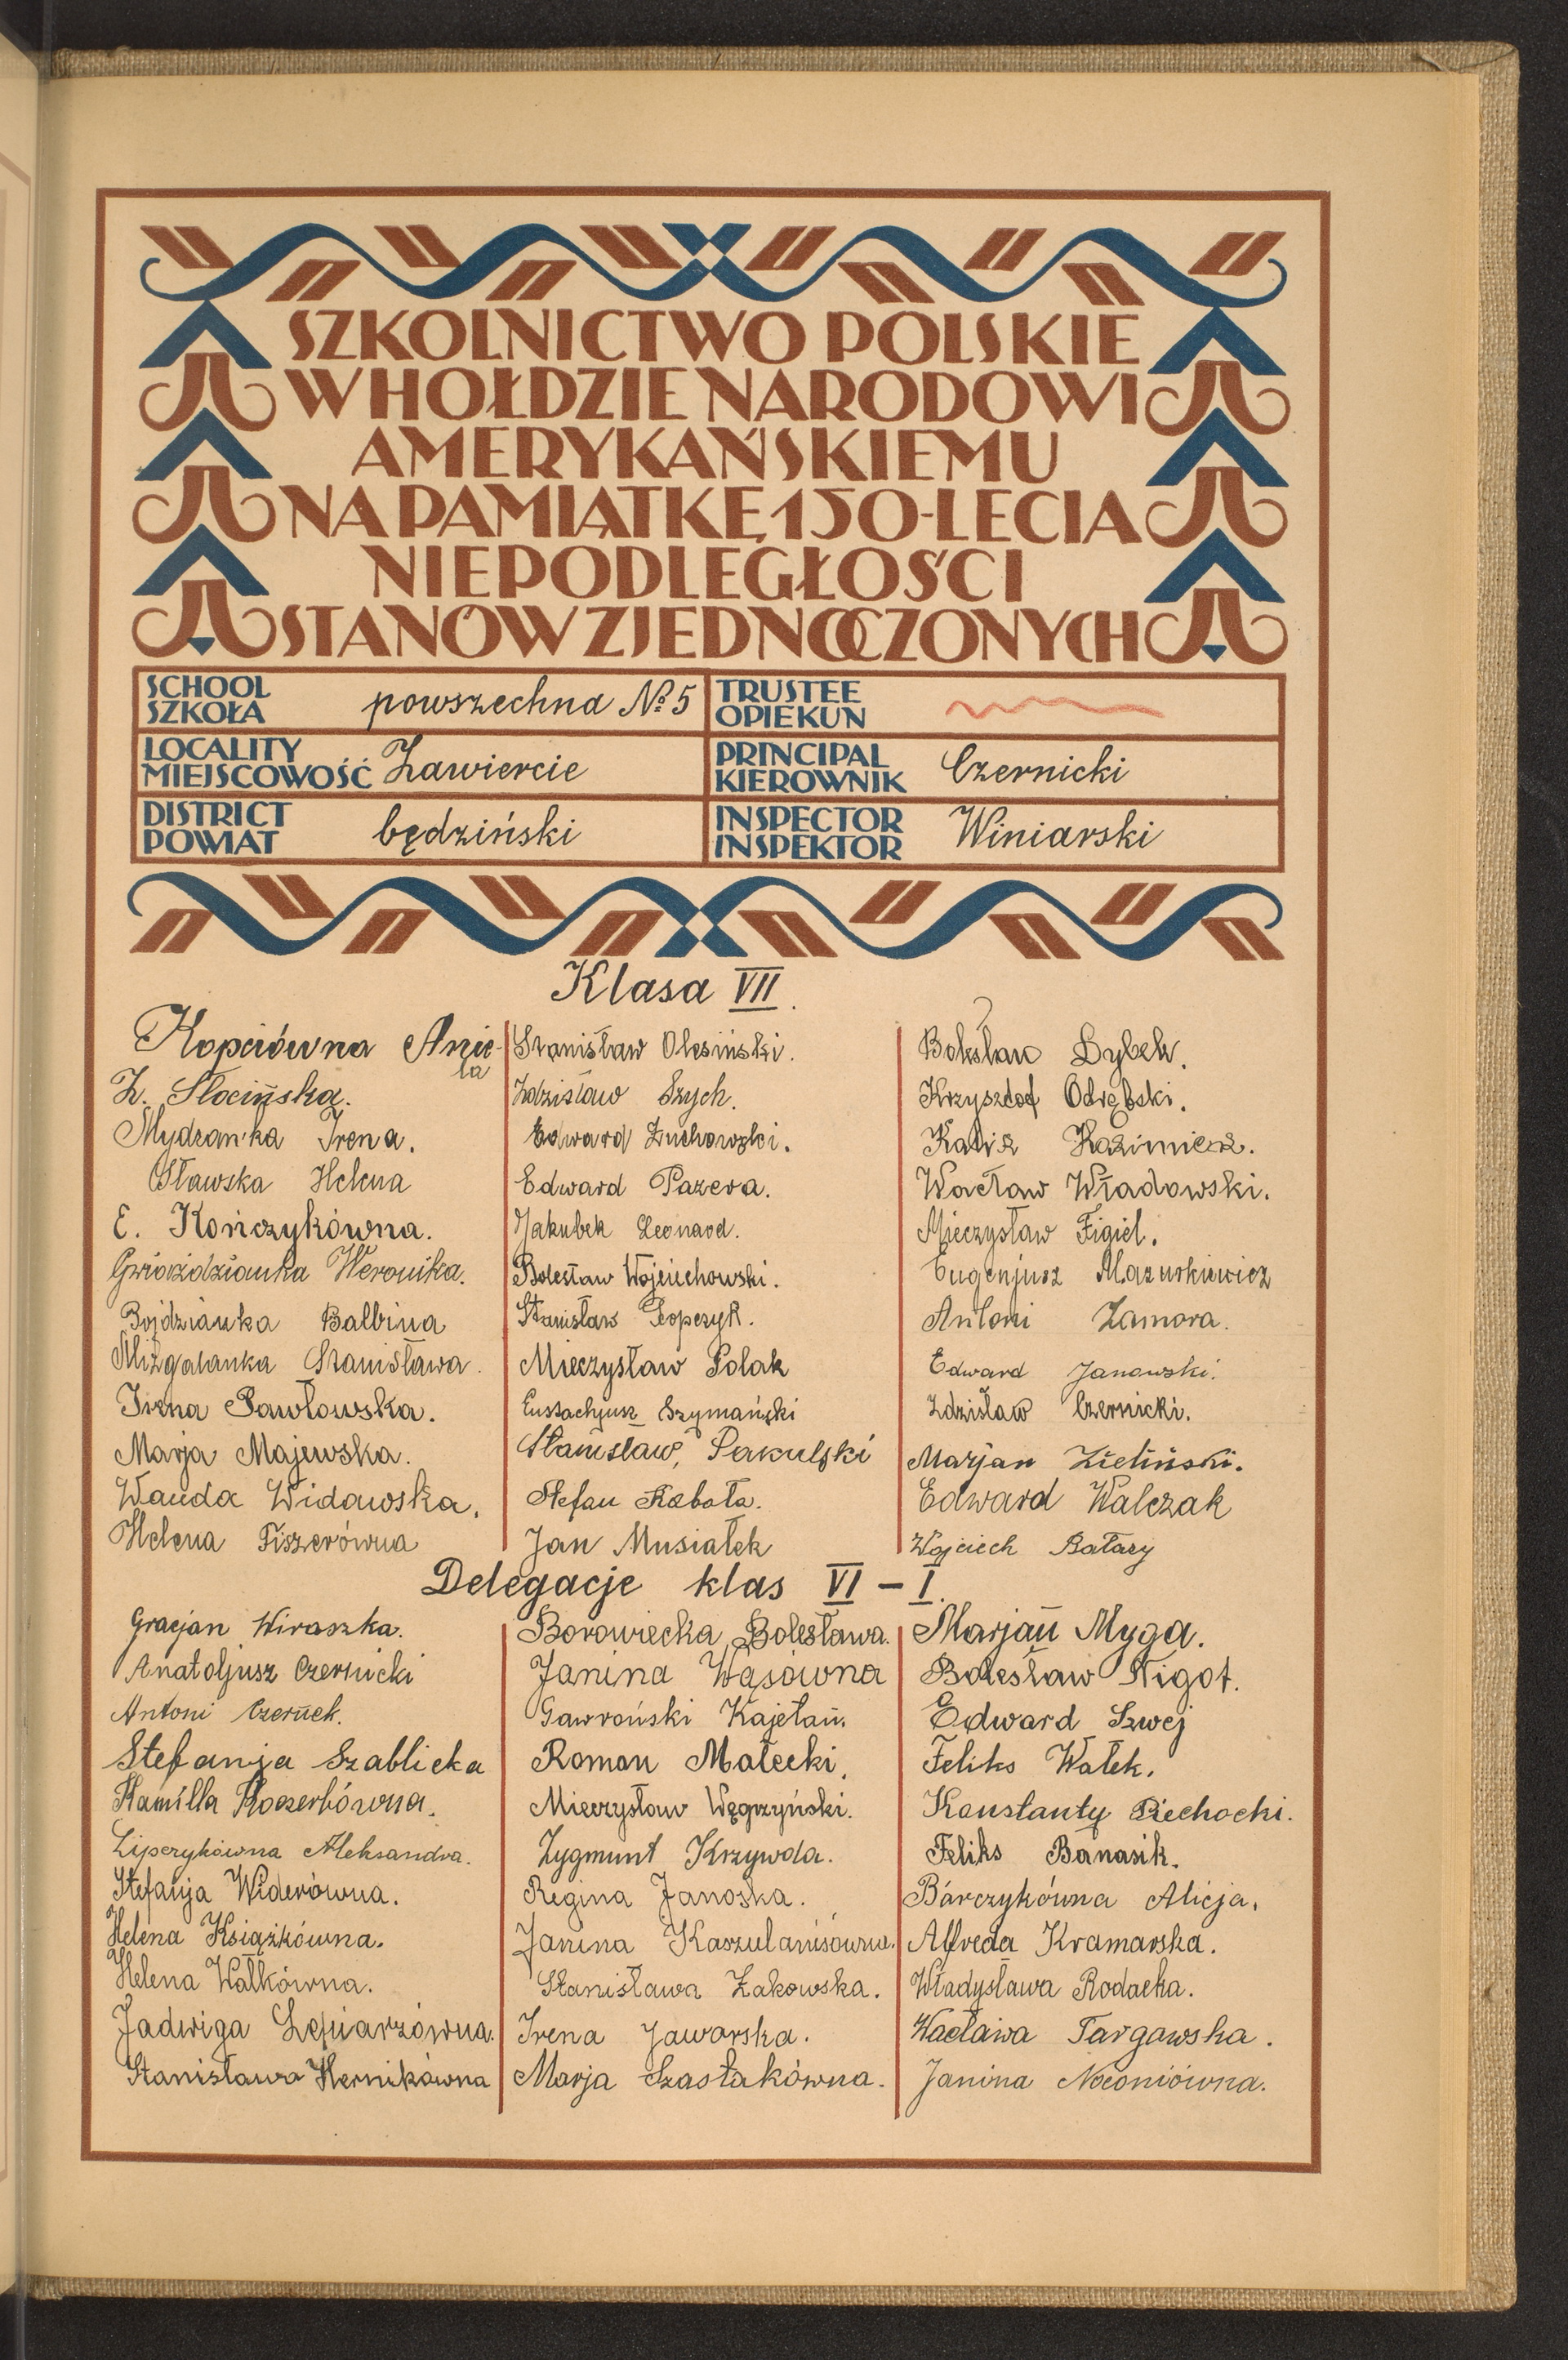 SZKOLNICTWO POLSKIE
W HOŁDZIE NARODOWI
AMERYKAŃSKIEMU
NA PAMIĄTKĘ 150-LECIA
NIEPODLEGŁOŚCI
STANÓW ZJEDNOCZONYCH
SCHOOL
SZKOŁA
powszechna № 5
TRUSTEE
OPIEKUN
LOCALITY
MIEJSCOWOŚĆ
Zawiercie
PRINCIPAL
KIEROWNIK
Czernicki
DISTRICT
POWIAT
będziński
INSPECTOR
INSPEKTOR
Winiarski
Klasa VII.
Kopciówna Anie-
la
Z. Słocińska.
Mydzanka Irena.
Sławska Helena
E. Kończykówna.
Gwiaździanka Weronika.
Bojdzianka Balbina
Mizgalanka Stanisława.
Irena Pawłowska.
Marja Majewska.
Wanda Widawska.
Helena Fiszerówna
Stanisław Olesiński.
Zdzisław Szych.
Edward Żuchowski.
Edward Pazera.
Jakubek Leonard.
Bolesław Wojciechowski.
Stanisław Popczyk.
Mieczysław Polak
Eustachjusz Szymański
Stanisław, Pakulski
Stefan Robota.
Jan Musiałek
Bolesław Dybek.
Krzysztof Odrębski.
Kazimierz.
Wacław Władowski.
Mieczysław Figiel.
Eugenjusz Mazurkiewicz
Antoni Zamora.
Edward Janowski.
Zdzisław Czernicki.
Marjan Zieliński.
Edward Walczak
Wojciech Batary
Delegacje klas VI – I.
Gracjan Wiraszka.
Anatoljusz Czernicki
Antoni Czernek.
Stefanja Szablicka
Kamilla Koczerbówna.
Lipczykówna Aleksandra.
Stefanja Widerówna.
Helena Książkówna.
Helena Wałkówna.
Jadwiga Lejniarzówna.
Stanisława Hernikówna
Borowiecka Bolesława.
Janina Wąsówna
Gawroński Kajetan.
Roman Małecki.
Mieczysław Węgrzyński.
Zygmunt Krzywda.
Regina Janoska.
Janina Kaszulanisówna.
Stanisława Żakowska.
Irena Jaworska.
Marja Szastakówna.
Marjan Myga.
Bolesław Nigot.
Edward Szwej
Feliks Wałek.
Konstanty Piechocki.
Feliks Banasik.
Barczykówna Alicja.
Alfreda Kramarska.
Władysława Rodacka.
Wacława Targawska.
Janina Noconiówna.